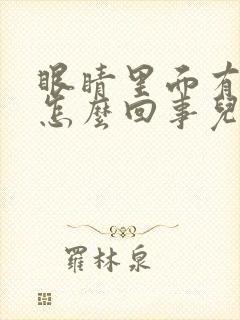 眼睛里面有
怎麼回事兒
羅林泉